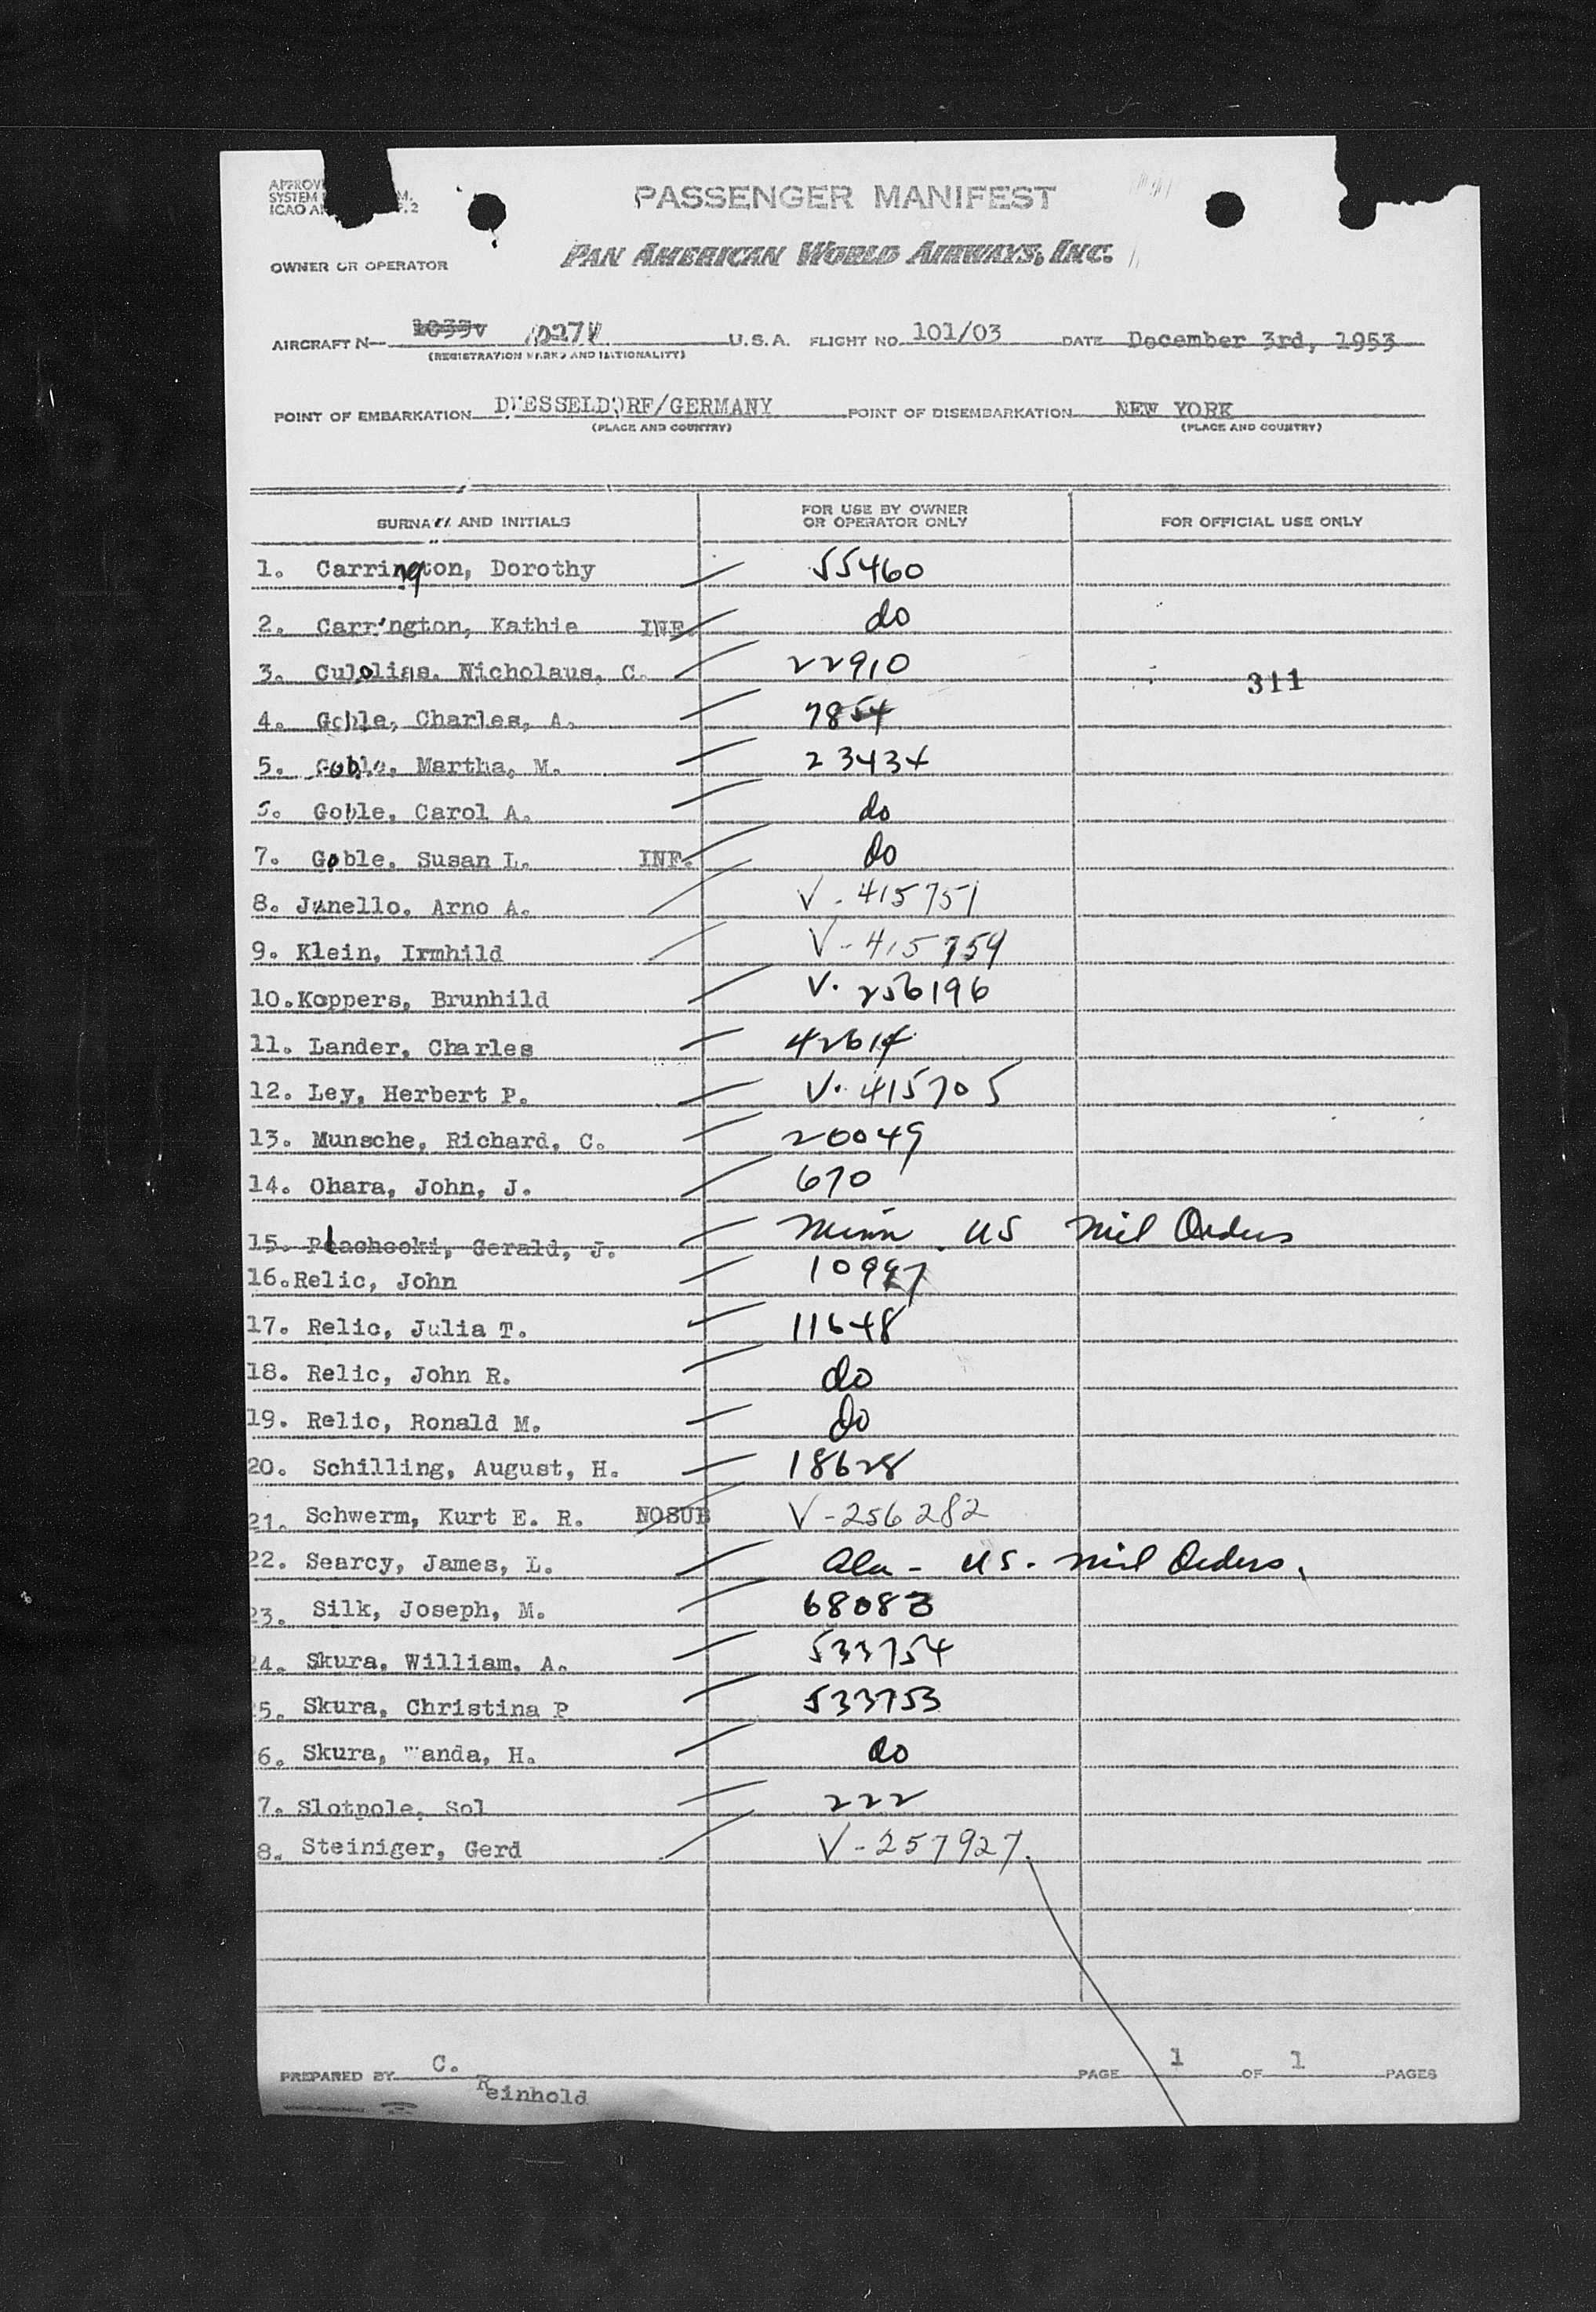 PASSENGER MANIFEST
PAN AMERICAN WORLD AIRWAYS, INC.
OWNER OR OPERATOR
AIRCRAFT N- 1033V 1027V U.S.A. FLIGHT NO. 101/03 DATE December 3rd, 1953
(REGISTRATION MARKS AND NATIONALITY)
POINT OF EMBARKATION DUESSELDORF/GERMANY POINT OF DISEMBARKATION NEW YORK
(PLACE AND COUNTRY) (PLACE AND COUNTRY)
SURNAME AND INITIALS FOR USE BY OWNER OR OPERATOR ONLY FOR OFFICIAL USE ONLY
1. Carrington, Dorothy 55460
2. Carrington, Kathie INF. do
3. Nicholaus, C. 22910
311
4. Goble, Charles, A. 7854
5. Goble, Martha, M. 23434
6. Goble, Carol A. do
7. Goble, Susan L. INF. do
8. Janello, Arno A. V-415751
9. Klein, Irmhild V-415759
10. Koppers, Brunhild V. 256196
11. Lander, Charles 42614
12. Ley, Herbert P. V. 415705
13. Munsche, Richard, C. 20049
14. Ohara, John, J. 670
15. Gerald, J. Minn. US Mil Orders
16. Relic, John 10997
17. Relic, Julia T. 11648
18. Relic, John R. do
19. Relic, Ronald M. do
20. Schilling, August, H. 18628
21. Schwerm, Kurt E. R. NOSUB V-256282
22. Searcy, James, L. Ala - US. Mil Orders.
23. Silk, Joseph, M. 68083
24. Skura, William, A. 533754
5. Skura, Christina P 533753
6. Skura, Wanda, H. do
7. Slotpole, Sol 222
8. Steiniger, Gerd V-257927
PREPARED BY C. Reinhold PAGE 1 OF 1 PAGES